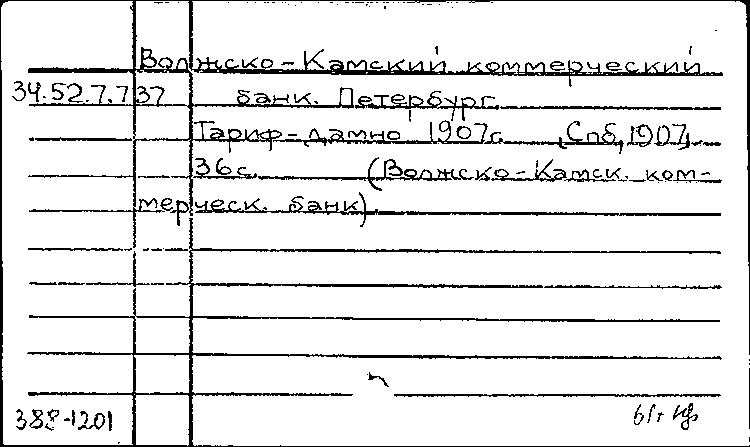 Волжско-Камский коммерческий
34.52.7.7 37 банк. Петербург.
Тариф-дамно 1907г. [Спб, 1907]
36с. (Волжско-Камск. ком-
мерческ. банк).
388-1201